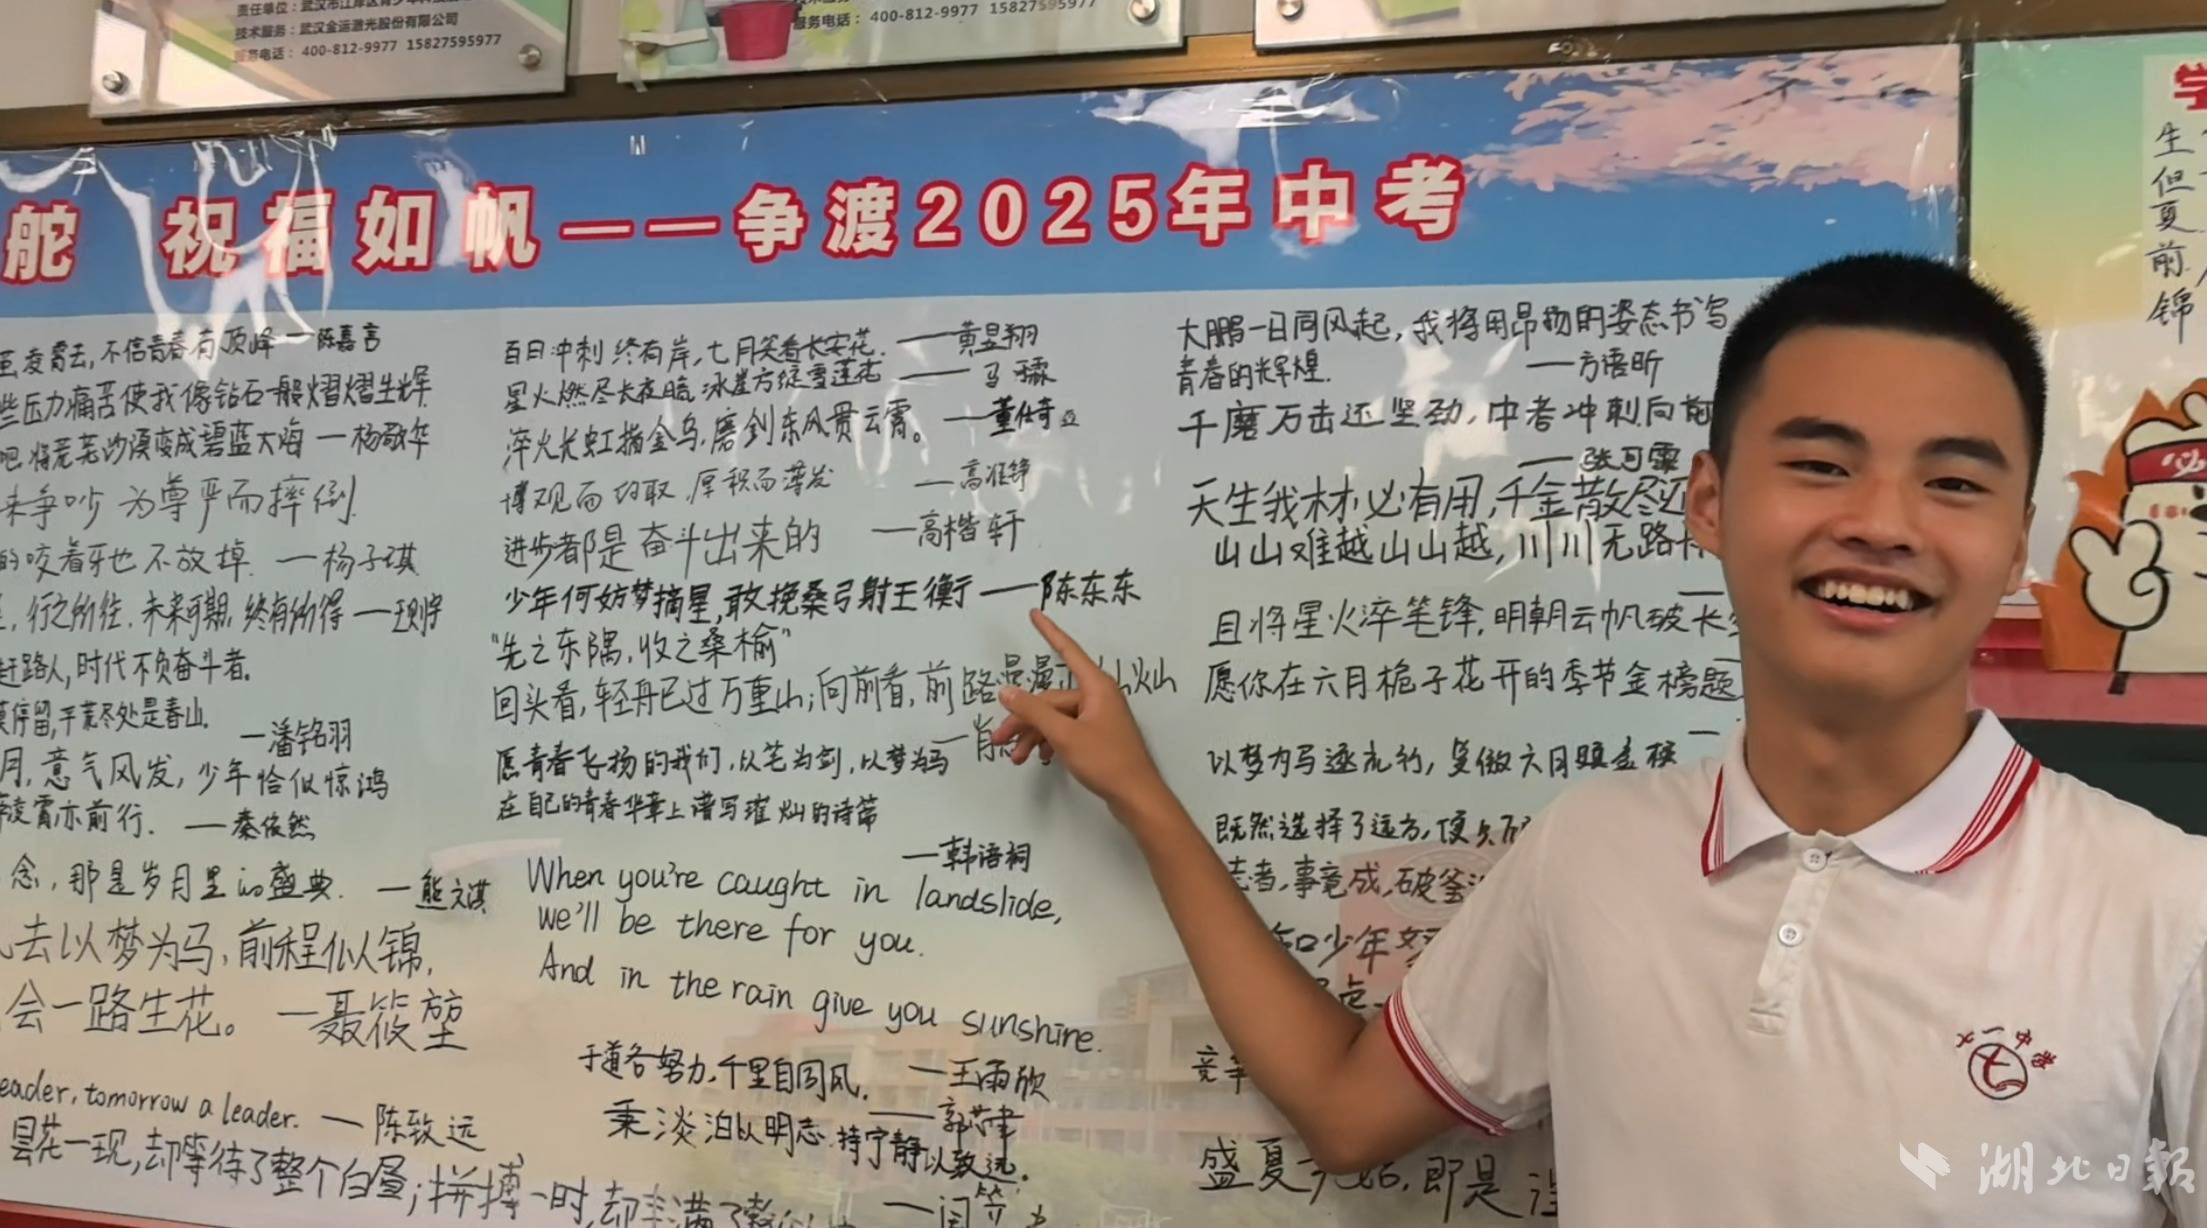 责任单位：武汉市江岸区青少年科技
技术服务：武汉金运激光股份有限公司
服务电话： 400-812-9977 15827595977
服务电话： 400-812-9977 15827595
舵 祝福如帆——争渡2025年中考
凌霄去，不信青春有顶峰 —陈嘉言
些压力痛苦使我像钻石一般熠熠生辉
吧 将荒芜沙漠变成碧蓝大海 —杨敬华
来争吵 为尊严而摔倒
的咬着牙也不放掉. —杨子琪
行之所往，未来可期，终有所得
赶路人，时代不负奋斗者。
莫停留，平芜尽处是春山.
—潘铭羽
月，意气风发，少年恰似惊鸿
凌霄亦前行. —秦依然
念，那是岁月里的盛典. —熊文淇
去以梦为马，前程似锦，
会一路生花。 —聂筱堃
eader, tomorrow a leader. —陈致远
昙花一现，却等待了整个白昼；拼搏一时，却丰满了
百日冲刺终有岸，七月笑看长安花. ——黄昱翔
星火燃尽长夜暗，冰崖方绽雪莲花 ——马
淬火长虹描金乌，磨剑东风贯云霄。 —董仕奇
博观而约取，厚积而薄发 —高
进步都是奋斗出来的 —高楷轩
少年何妨梦摘星，敢挽桑弓射玉衡 ——陈东东
“失之东隅，收之桑榆”
回头看，轻舟已过万重山；向前看，前路漫漫亦灿灿
—肖
愿青春飞扬的我们，以笔为剑，以梦为马
在自己的青春华章上谱写璀灿的诗篇
—韩语祠
When you're caught in landslide,
we'll be there for you.
And in the rain give you sunshine.
于道各努力，千里自同风. —王雨欣
秉淡泊以明志，持宁静以致远。
大鹏一日同风起，我将用昂扬的姿态书写
青春的辉煌. —方语昕
千磨万击还坚劲，中考冲刺向前
—张可霏
天生我材必有用，千金散尽还
山山难越山山越，川川无路
且将星火淬笔锋，明朝云帆破长
愿你在六月栀子花开的季节金榜题
以梦为马逐
既然选择了远方，便只
志者，事竟成，破釜
少年
竞
盛夏 即是
学
生但夏前锦
必
七一中学
湖北日报